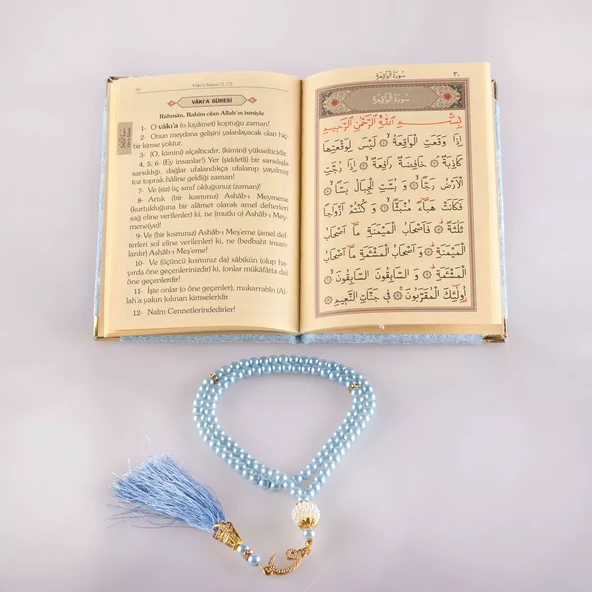 Vâkıa Sûresi (1-12)
VÂKI'A SÛRESİ
Rahmân, Rahîm olan Allah'ın ismiyle
1- O vâkı'a (o kıyâmet) koptuğu zaman!
2- Onun meydana gelişini yalanlayacak olan hiç-
bir kimse yoktur.
3- (O, kimini) alçaltıcıdır, (kimini) yükselticidir.
4, 5, 6- (Ey insanlar!) Yer (şiddetli) bir sarsılışla
sarsıldığı, dağlar ufalandıkça ufalanıp yayılmış
toz toprak hâline geldiği zaman!
7- Ve (siz) üç sınıf olduğunuz (zaman)!
8- Artık (bir kısmınız) Ashâb-ı Meymene
(kurtulduğuna bir alâmet olarak amel defterleri
sağ eline verilenler) ki, ne (mutlu o) Ashâb-ı Mey-
mene(ye)!
9- Ve (bir kısmınız) Ashâb-ı Meş'eme (amel def-
terleri sol eline verilenler) ki, ne (bedbaht insan-
lardır) Ashâb-ı Meş'eme!
10- Ve (üçüncü kısmınız da) sâbikûn (olup ha-
yırda öne geçenlerinizdir) ki, (onlar mükâfâtta da)
öne geçenlerdir!
11- İşte onlar (o öne geçenler), mukarrabîn (Al-
lah'a yakın kılınan kimseler)dir.
12- Naîm Cennetlerindedirler!
٣٠ سُورَةُ الْوَاقِعَةِ
سُورَةُ الْوَاقِعَةِ
بِسْــــمِ اللّٰهِ الرَّحْمٰنِ الرَّحِيمِ
اِذَا وَقَعَتِ الْوَاقِعَةُ ۞ لَيْسَ لِوَقْعَتِهَا
كَاذِبَةٌ ۞ خَافِضَةٌ رَافِعَةٌ ۞ اِذَا رُجَّتِ
الْاَرْضُ رَجًّا ۞ وَ بُسَّتِ الْجِبَالُ بَسًّا ۞
فَكَانَتْ هَبَاءً مُنْبَثًّا ۞ وَ كُنْتُمْ اَزْوَاجًا
ثَلٰثَةً ۞ فَاَصْحَابُ الْمَيْمَنَةِ مَا اَصْحَابُ
الْمَيْمَنَةِ ۞ وَ اَصْحَابُ الْمَشْئَمَةِ مَا اَصْحَابُ
الْمَشْئَمَةِ ۞ وَ السَّابِقُونَ السَّابِقُونَ ۞
اُولٰئِكَ الْمُقَرَّبُونَ ۞ فِي جَنَّاتِ النَّعِيمِ ۞